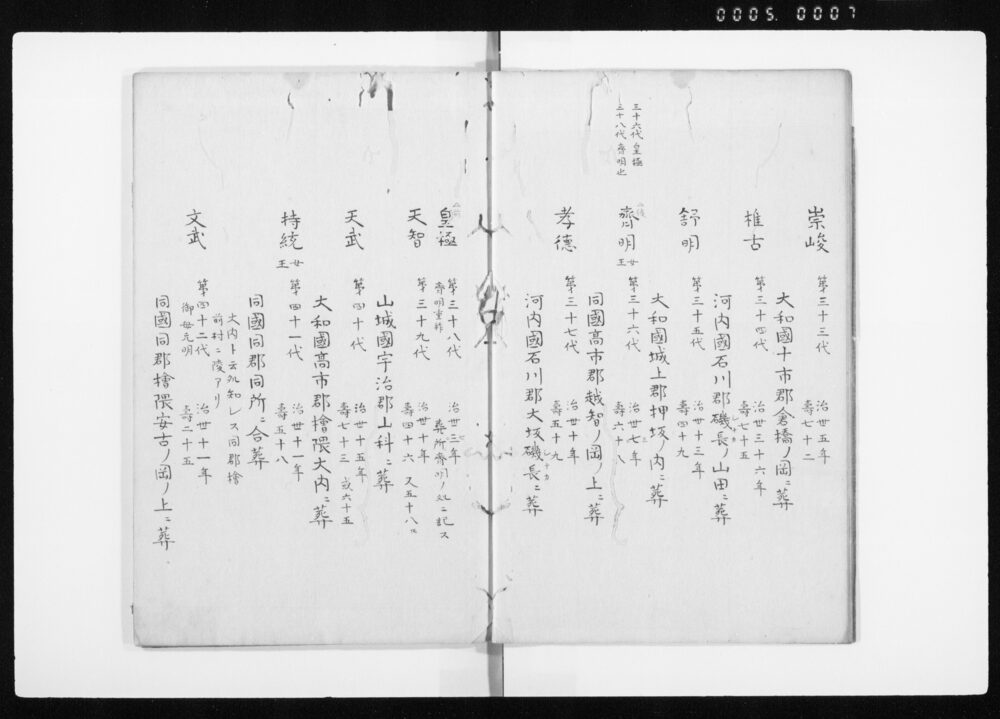 0005. 0007
崇峻 第三十三代 治世五年 壽七十二
大和國十市郡倉橋ノ岡ニ葬
推古 第三十四代 治世三十六年 壽七十五
河内國石川郡磯長ノ山田ニ葬
舒明 第三十五代 治世十三年 壽四十九
大和國城上郡押坂ノ内ニ葬
三十六代皇極
三十八代齊明也
齊明 女王 第三十六代 治世七年 壽六十八
同國高市郡越智ノ岡ノ上ニ葬
孝德 第三十七代 治世十年 壽五十九
河内國石川郡大坂磯長ニ葬
皇極 第三十八代 齊明重祚 治世三年 葬所齊明ノ処ニ記ス
天智 第三十九代 治世十年 壽四十六 又五十八
山城國宇治郡山科ニ葬
天武 第四十代 治世十五年 壽七十三 或六十五
大和國高市郡檜隈大内ニ葬
持統 女王 第四十一代 治世十一年 壽五十八
同國同郡同所ニ合葬
大内ト云処知レス同郡檜
前村ニ陵アリ
文武 第四十二代 御母元明 治世十一年 壽二十五
同國同郡檜隈安古ノ岡ノ上ニ葬